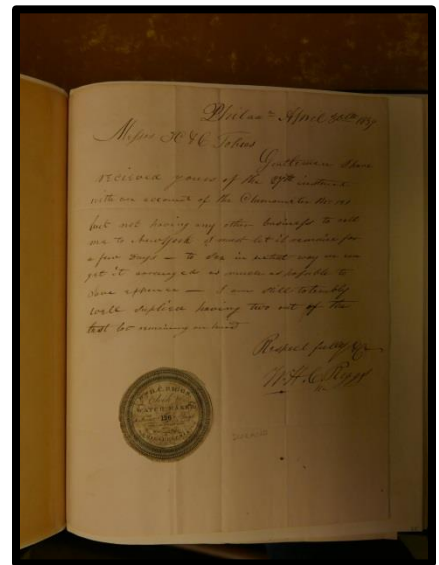 Philad.a April 30th 1839
Messrs H & C Tobias
Gentlemen I have
received yours of the 27th instant
with an account of the Chronometer No.
but not having any other business to call
me to New York I must let it remain for
a few days — to see in what way we can
get it arranged as much as possible to
save expense — I am still tolerably
well supplied having two out of the
last lot remaining on hand
Respectfully &c
W. H. C. Riggs
WM. H. C. RIGGS
Clock &
WATCH MAKER
PHILADELPHIA